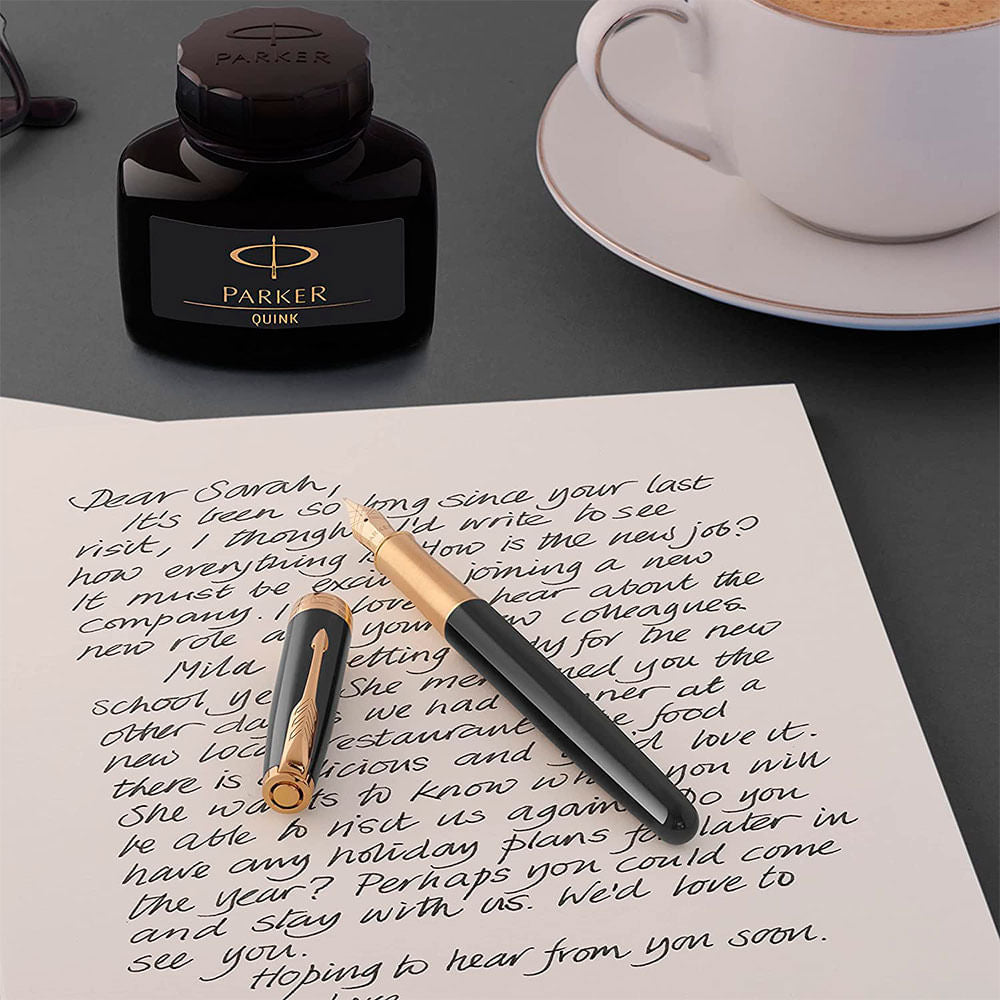 PARKER
PARKER
QUINK
Dear Sarah,
It's been so long since your last
visit, I though I'd write to see
how everything is. How is the new job?
It must be exci joining a new
company. I love hear about the
new role a your new colleagues
Mila etting dy for the new
school ye She men ned you the
other da we had nner at a
new loca restaurant e food
there is licious and d love it.
She wa ts to know wh you will
be able to visit us again Do you
have any holiday plans fo later in
the year? Perhaps you could come
and stay with us. We'd love to
see you.
Hoping to hear from you soon.